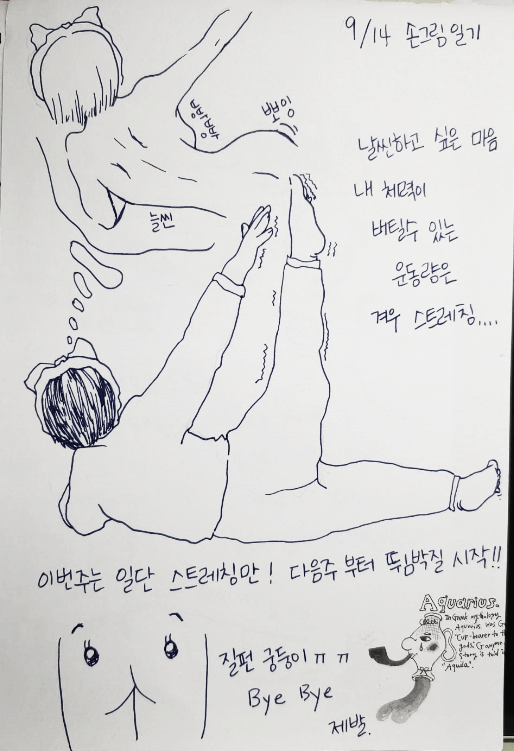 9/14 손그림일기
빵빵
뽀잉
늘씬
날씬하고 싶은 마음
내 체력이
버틸수 있는
운동량은
겨우 스트레칭....
이번주는 일단 스트레칭만! 다음주 부터 뜀박질 시작!!
질펀 궁둥이 ㅠㅠ
Bye Bye
제발.
Aquarius.
In Greek mythology,
Aquarius was
"cup-bearer to the
gods"
story is told
"Aquila".